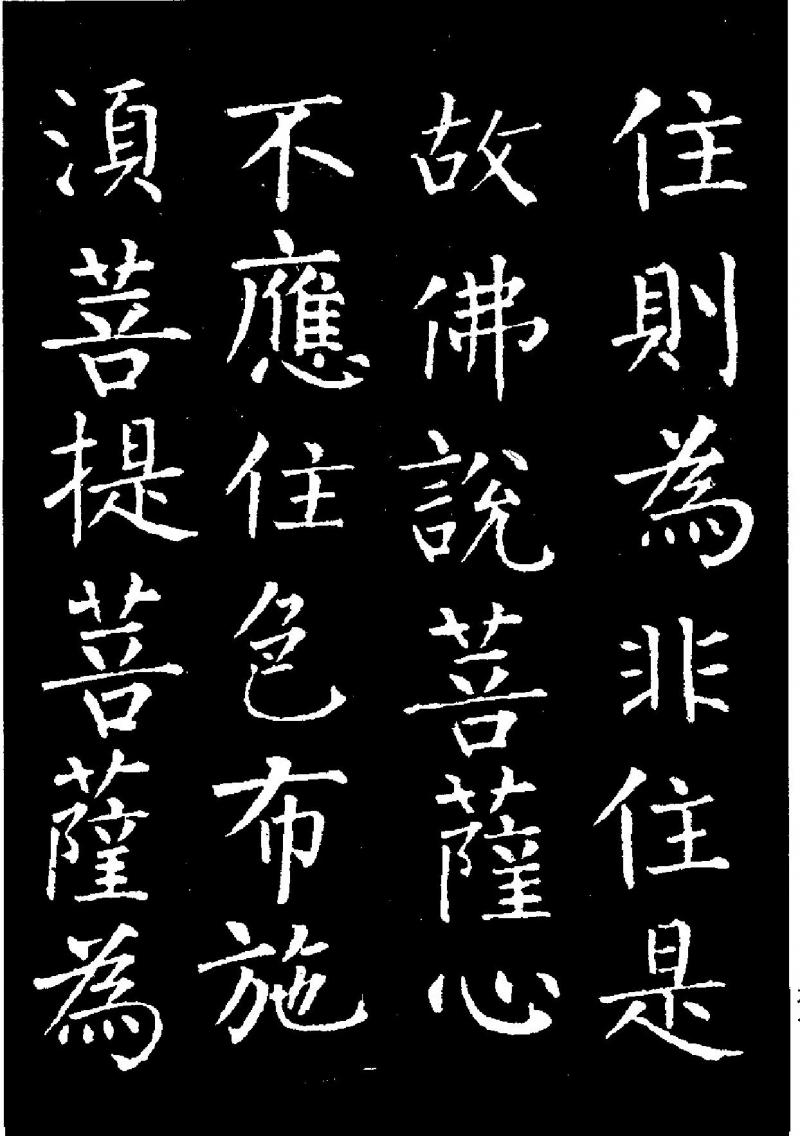 住則為非住是
故佛說菩薩心
不應住色布施
湏菩提菩薩為